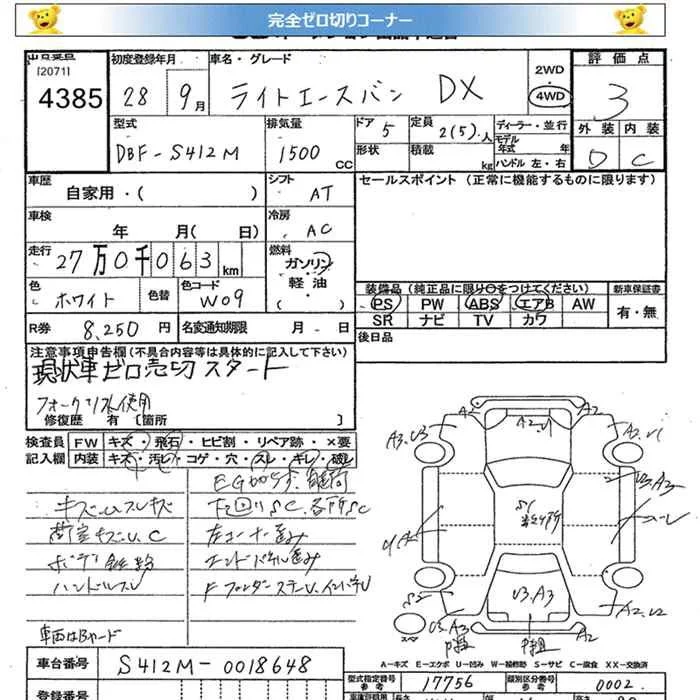 完全ゼロ切りコーナー
出品番号
[2071]
4385
初度登録年月
28 9月
車名・グレード
ライトエースバン DX
2WD
4WD
評価点
3
外装 内装
D C
型式
DBF-S412M
排気量
1500 cc
ドア
5
形状
定員
2(5).人
積載
kg
ディーラー・並行
モデル年式 年
ハンドル 左・右
車歴
自家用・( )
シフト
AT
セールスポイント (正常に機能するものに限ります)
車検
年 月( 日)
冷房
AC
走行
27万0千063km
燃料
ガソリン
軽油
・( )
色
ホワイト
色替
色コード
W09
装備品(純正品に限り○をつけてください)
新車保証書
PS PW ABS エアB AW
SR ナビ TV カワ
有・無
R券 8,250円
名変通知期限 月 日
後日品
注意事項申告欄(不具合内容等は具体的に記入して下さい)
現状車ゼロ売切スタート
フォークリフト使用
修復歴 有 〔箇所 〕
検査員 FW キズ・飛石・ヒビ割・リペア跡・×要
記入欄 内装 キズ・汚レ・コゲ・穴・スレ・キレ・破レ
キズUスレキズ
下回りSC.各所SC
荷室キズU.C
左コーナー歪み
ハンドルスレ
車両はBヤード
A2
A2.U1
A2
A3.U3
A2.U1
U3.A3
U3.A3
U3.A3
A2.U2
A2
車台番号 S412M-0018648
A-キズ E-エクボ U-凹み W-補修跡 S-サビ C-腐食 XX-交換済
型式指定番号
参考
17756
類別区分番号
参考
0002
登録番号